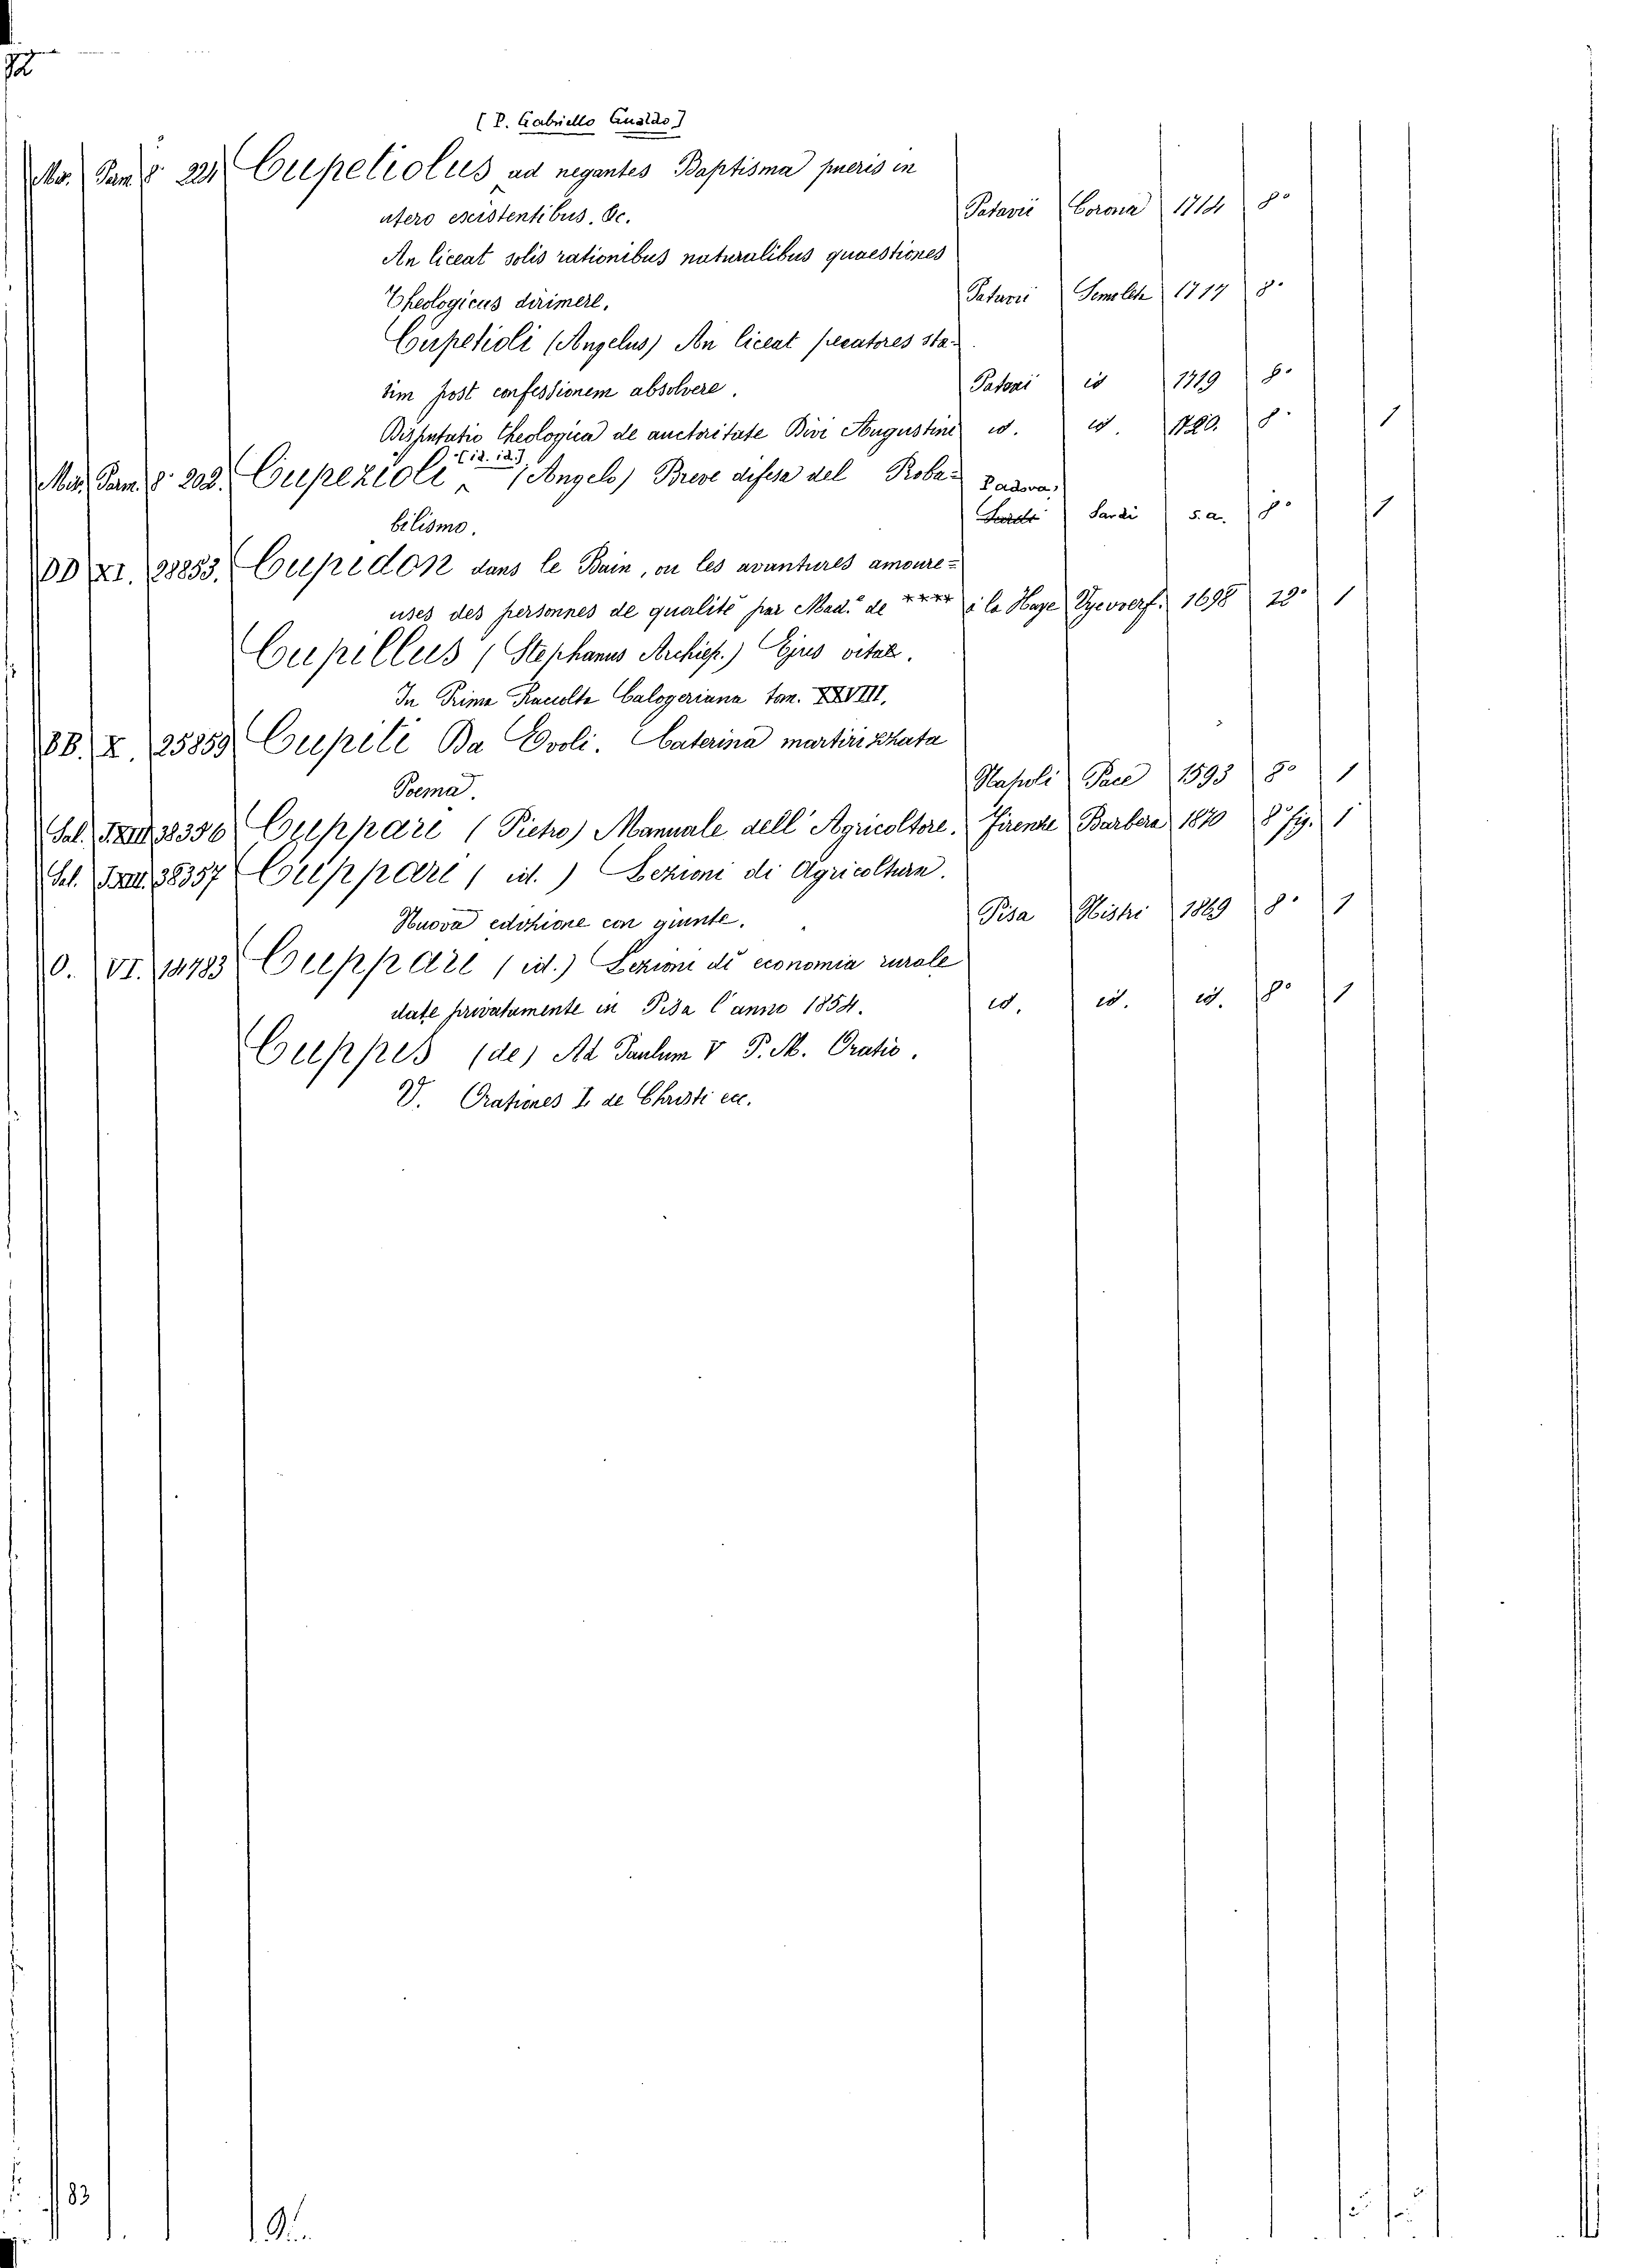 [P. Gabriello Gualdo]
Mo. Pan. 8º 221 Cupetiolus ad negantes Baptisma pueris in
utero existentibus. &c. Patavii Corona 1714 8º
An liceat solis rationibus naturalibus quaestiones
Theologicus dirimere. Patavii 1717 8º
Cupetioli (Angelus) An liceat peccatores sta-
tim post confessionem absolvere. Patavi id 1719 8º
Disputatio Theologica de auctoritate Divi Augustini id. id. 1720. 8º 1
[id. id.]
Pam. 8º 202. Cupezioli (Angelo) Breve difesa del Proba=
bilismo. Padova, Sardi s.a. 8º 1
DD XI. 28853. Cupidon dans le Bain, ou les avantures amoure=
uses des personnes de qualité par Mad.e de **** à la Haye 1698 12º 1
Cupillus (Stephanus Archiep.) Ejus vitae.
In Prima Raccolta Calogeriana tom. XXVIII.
BB. X. 25859 Cupiti Da Evoli. Caterina martirizzata
Poema. Napoli Pace 1593 8º 1
Sal. T.XIII 38356 Cuppari (Pietro) Manuale dell' Agricoltore. Firenze Barbera 1870 8º fig. 1
Sal. T.XIII. 38357 Cuppari (id.) Lezioni di Agricoltura.
Nuova edizione con giunte. Pisa Nistri 1869 8º 1
O. VI. 14783 Cuppari (id.) Lezioni di economia rurale
date privatamente in Pisa l'anno 1854. id. id. id. 8º 1
Cuppes (de) Ad Paulum V P. M. Oratio.
V. Orationes I de Christi ecc.
83